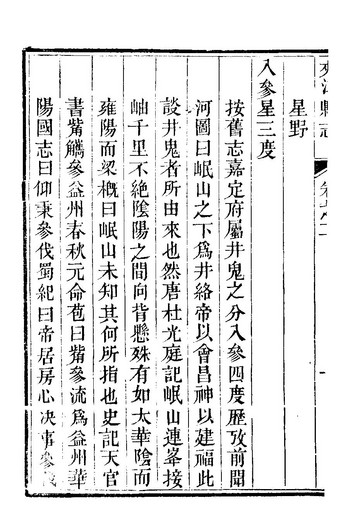 夾江縣志
卷之一
星野
入參星三度
按舊志嘉定府屬井鬼之分入參四度歷攷前聞
河圖曰岷山之下爲井絡帝以會昌神以建福此
談井鬼者所由來也然唐杜光庭記岷山連峯接
岫千里不絕陰陽之間向背懸殊有如太華陰而
雍陽而梁概曰岷山未知其何所指也史記天官
書觜觿參益州春秋元命苞曰觜參流爲益州華
陽國志曰仰秉參伐蜀紀曰帝居房心决事參伐